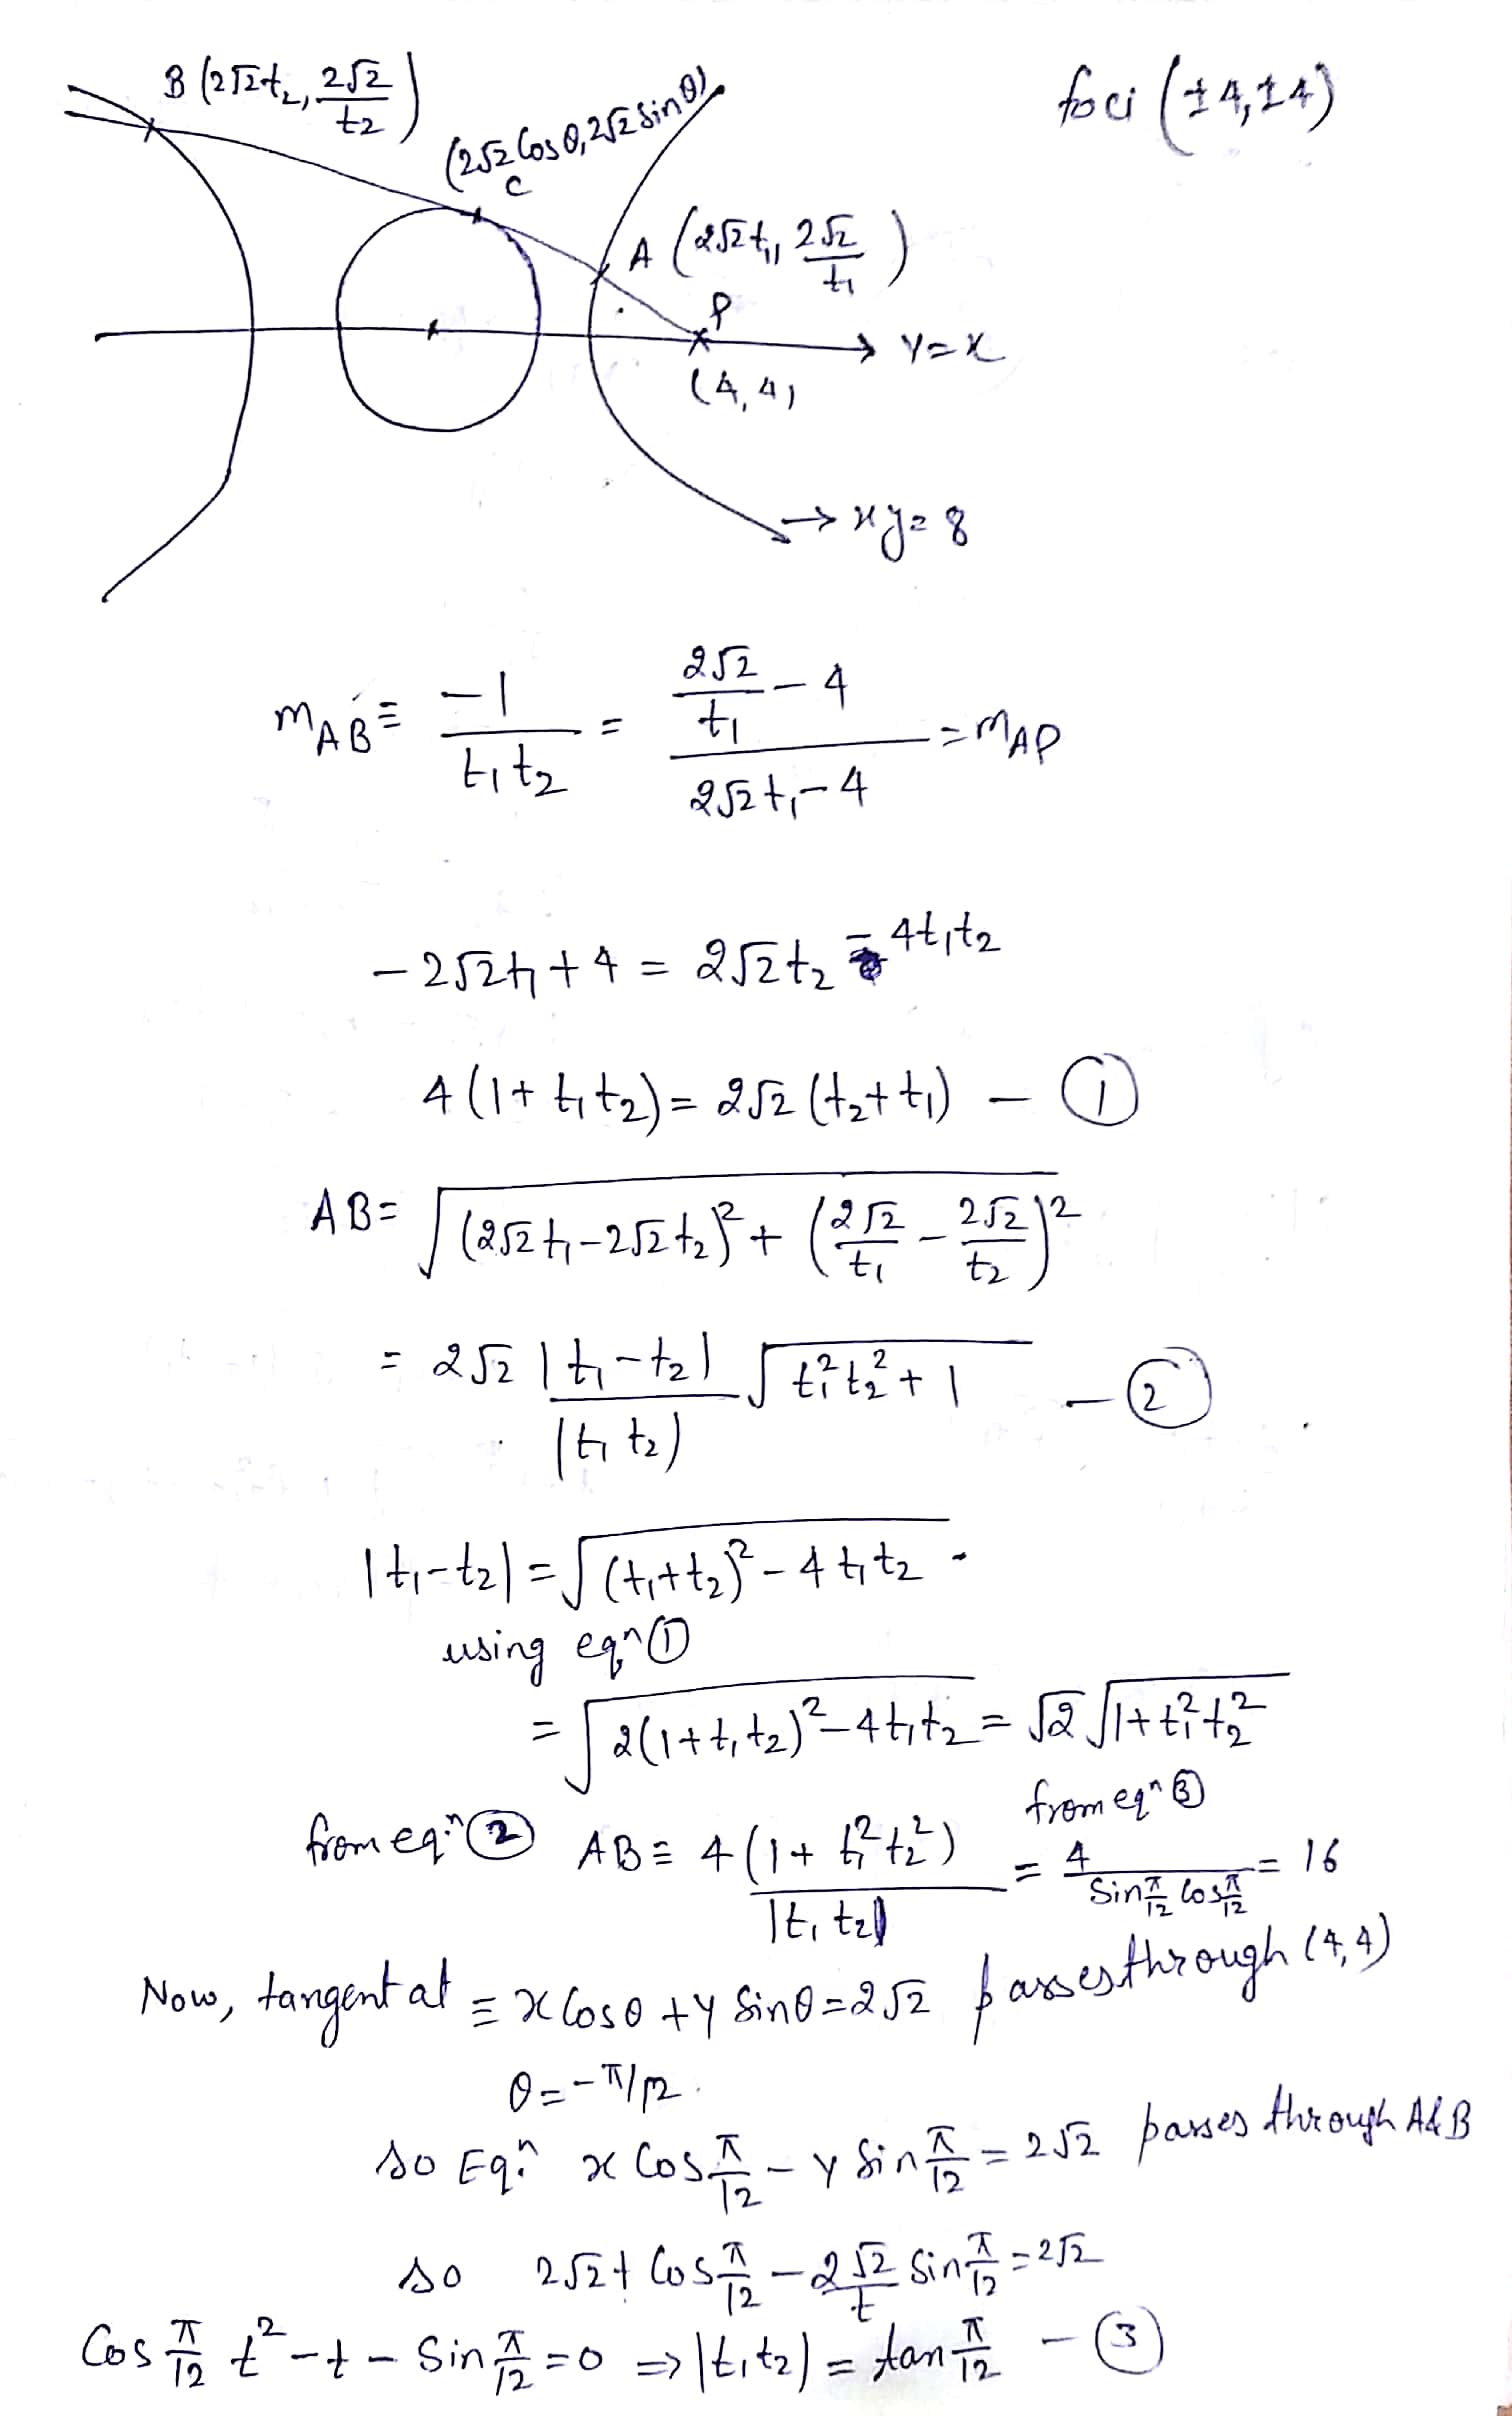 B (2√2t₂, 2√2/t₂)
foci (±4, ±4)
(2√2 Cosθ, 2√2 Sinθ)
C
A (2√2t₁, 2√2/t₁)
P
→ Y=X
(4, 4)
→ xy=8
m_AB ≡ -1/(t₁t₂) = (2√2/t₁ - 4)/(2√2t₁-4) = m_AP
-2√2t₁ + 4 = 2√2t₂ - 4t₁t₂
4(1+t₁t₂) = 2√2 (t₂+t₁) - ①
AB = √((2√2t₁-2√2t₂)² + (2√2/t₁ - 2√2/t₂)²)
= 2√2 |t₁-t₂|/|t₁t₂| √(t₁²t₂²+1) - ②
|t₁-t₂| = √((t₁+t₂)²-4t₁t₂)
using eqⁿ ①
= √(2(1+t₁t₂)²-4t₁t₂) = √2 √(1+t₁²t₂²)
from eqⁿ ② AB ≡ 4(1+t₁²t₂²)/|t₁t₂| from eqⁿ ③ = 4/(Sin π/12 Cos π/12) = 16
Now, tangent at ≡ x Cosθ + y Sinθ = 2√2 passes through (4,4)
θ = -π/12.
so Eqⁿ x Cos π/12 - y Sin π/12 = 2√2 passes through A & B
so 2√2t Cos π/12 - 2√2/t Sin π/12 = 2√2
Cos π/12 t² - t - Sin π/12 = 0 ⇒ |t₁t₂| = tan π/12 - ③